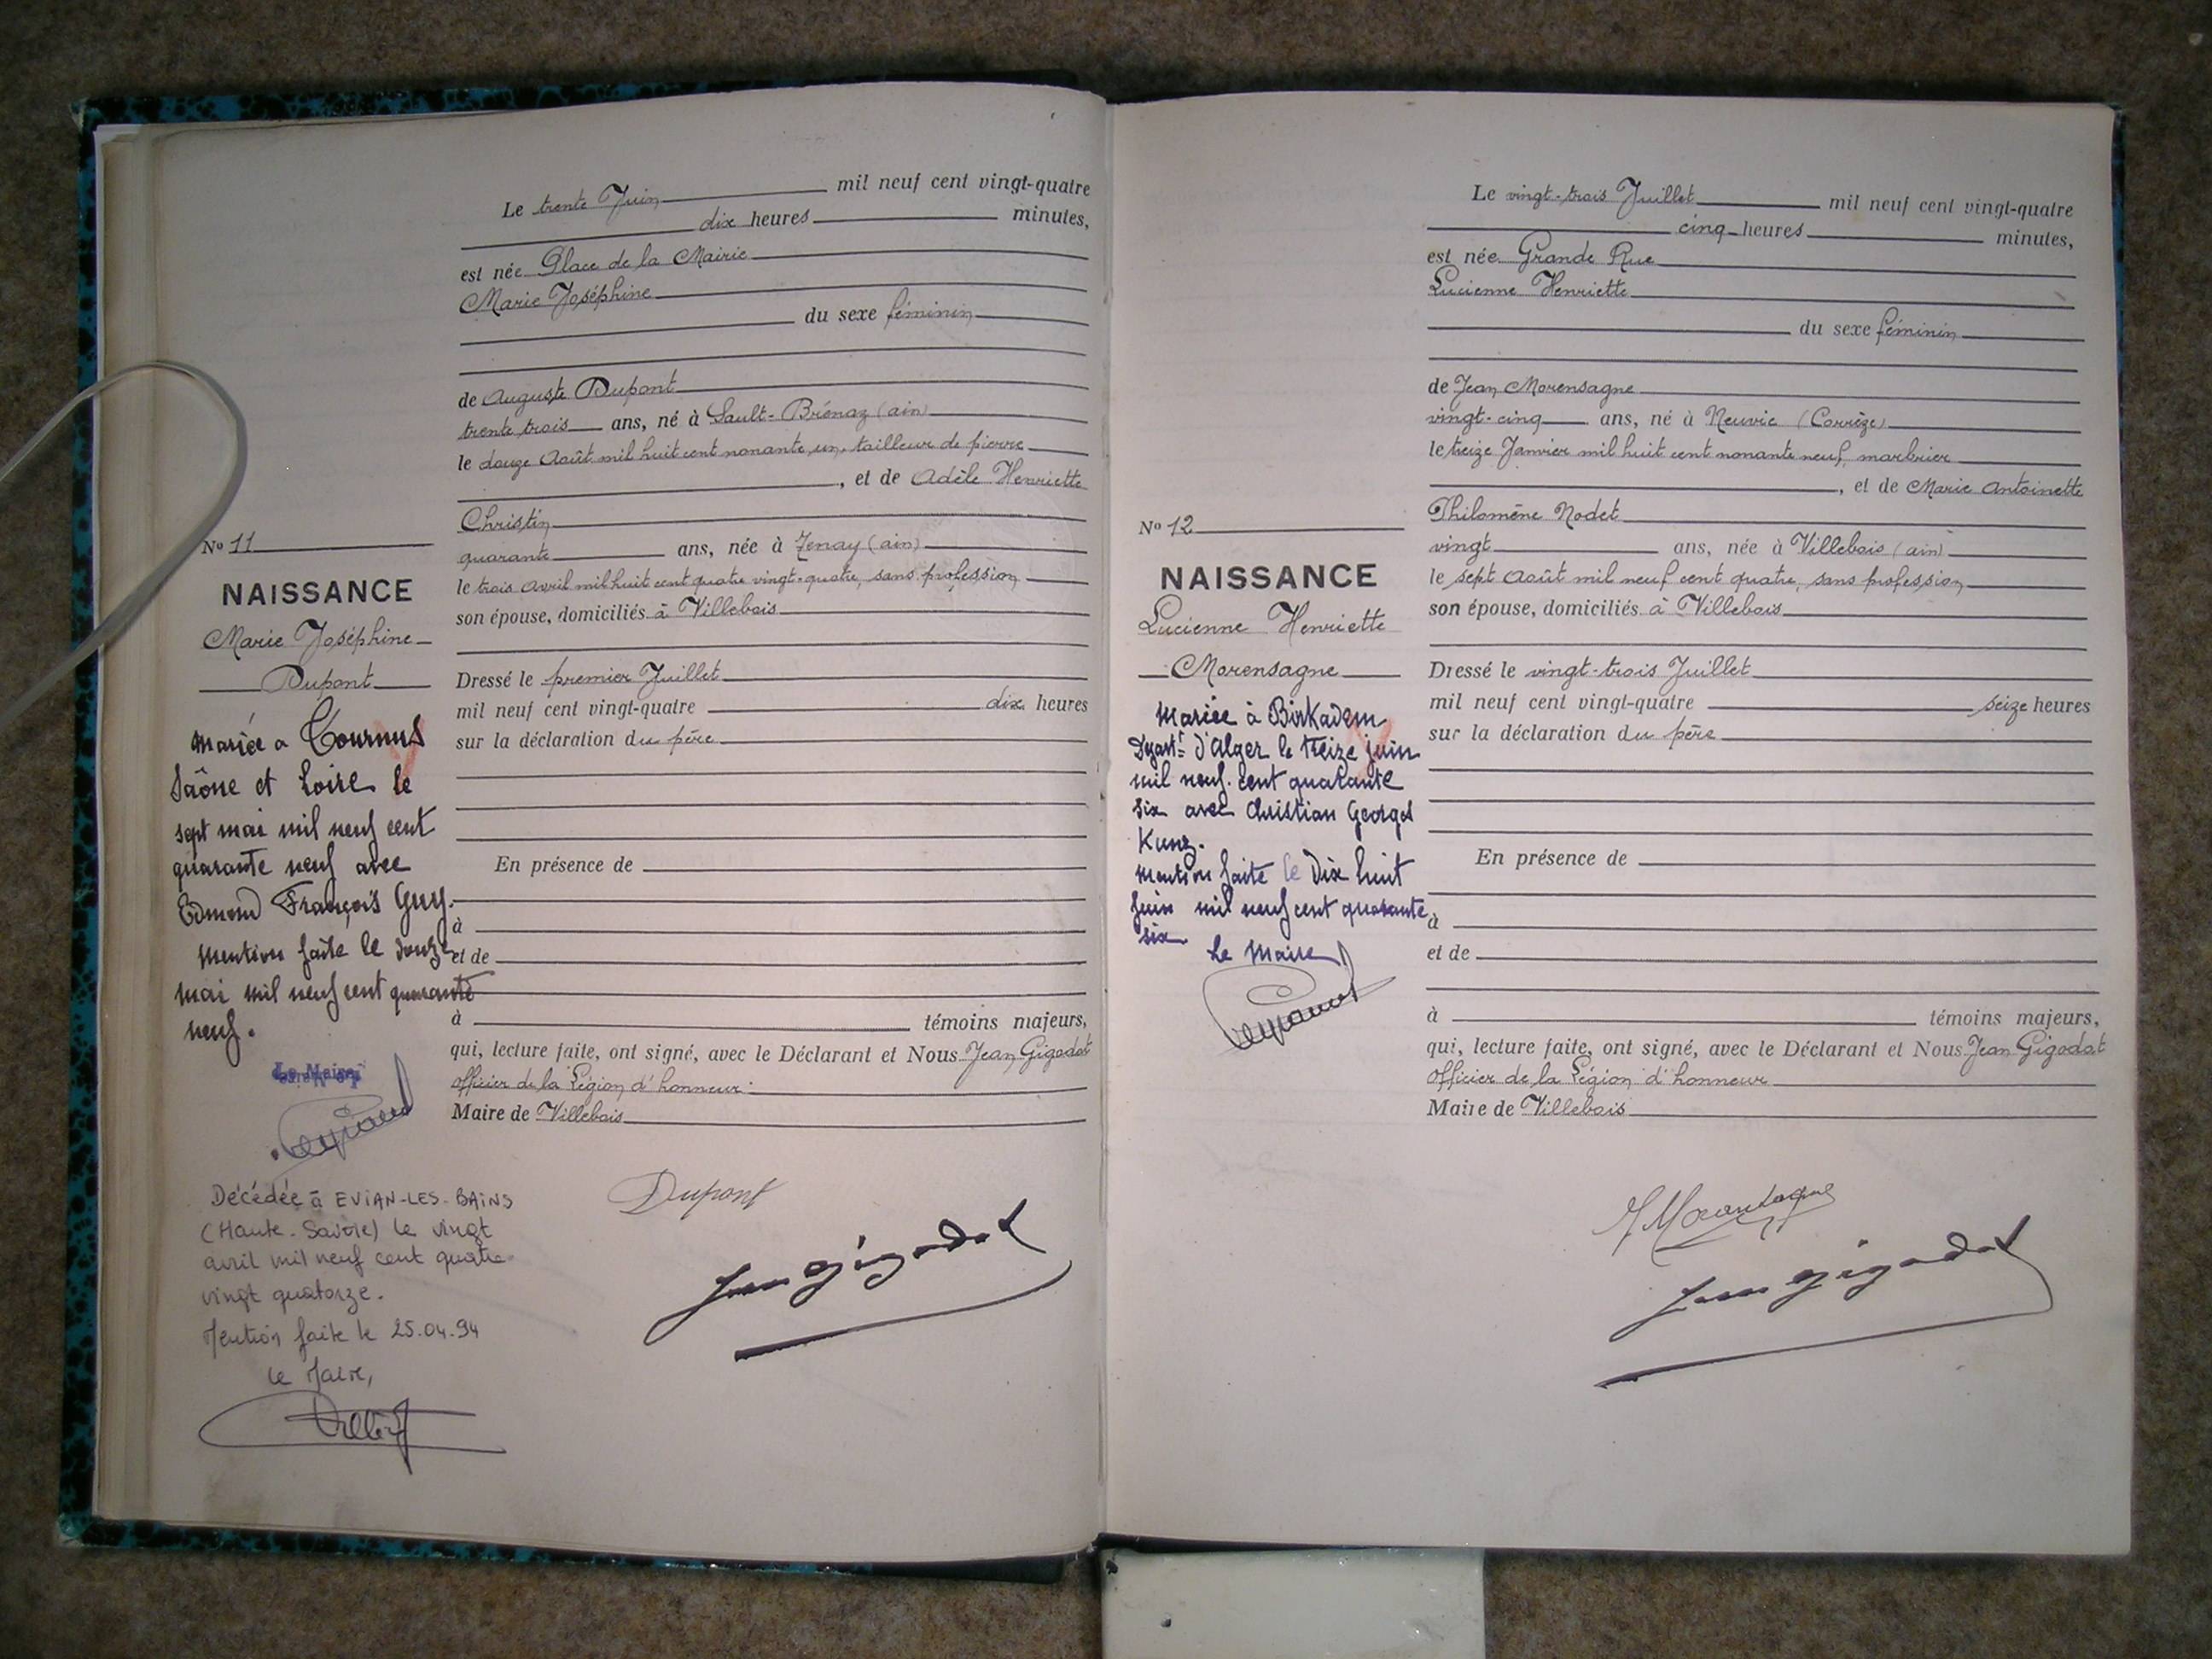 Le trente Juin mil neuf cent vingt-quatre
dix heures minutes,
est née Place de la Mairie
Marie Joséphine
du sexe féminin
de Auguste Dupont
trente trois ans, né à Sault-Brénaz (ain)
le douze Août mil huit cent nonante un, tailleur de pierre
, et de Adèle Henriette
Christin
quarante ans, née à Tenay (ain)
le trois avril mil huit cent quatre vingt-quatre, sans profession
son épouse, domiciliés à Villebois
Dressé le premier Juillet
mil neuf cent vingt-quatre dix heures
sur la déclaration du père
En présence de
à
et de
à témoins majeurs,
qui, lecture faite, ont signé, avec le Déclarant et Nous Jean Gigodot
officier de la Légion d'honneur
Maire de Villebois
Dupont
Jean Gigodot
No 11
NAISSANCE
Marie Joséphine
Dupont
Mariée a Tournus
Saône et Loire le
sept mai mil neuf cent
quarante neuf avec
Edmond François Guy.
Mention faite le douze
mai mil neuf cent quarante
neuf.
Le Maire
Décédée à EVIAN-LES-BAINS
(Haute-Savoie) le vingt
avril mil neuf cent quatre-
vingt quatorze.
Mention faite le 25.04.94
le Maire,
Le vingt-trois Juillet mil neuf cent vingt-quatre
cinq heures minutes,
est née Grande Rue
Lucienne Henriette
du sexe féminin
de Jean Morensagne
vingt-cinq ans, né à Neuvic (Corrèze)
le treize Janvier mil huit cent nonante neuf, marbrier
, et de Marie Antoinette
Philomène Nodet
vingt ans, née à Villebois (ain)
le sept Août mil neuf cent quatre, sans profession
son épouse, domiciliés à Villebois
Dressé le vingt-trois Juillet
mil neuf cent vingt-quatre seize heures
sur la déclaration du père
En présence de
à
et de
à témoins majeurs,
qui, lecture faite, ont signé, avec le Déclarant et Nous Jean Gigodot
officier de la Légion d'honneur
Maire de Villebois
Jean Gigodot
No 12
NAISSANCE
Lucienne Henriette
Morensagne
Mariée à Birkadem
d'Alger le treize juin
mil neuf cent quarante
six avec Christian Georges
Kunz.
Mention faite le Dix huit
juin mil neuf cent quarante
six
Le Maire